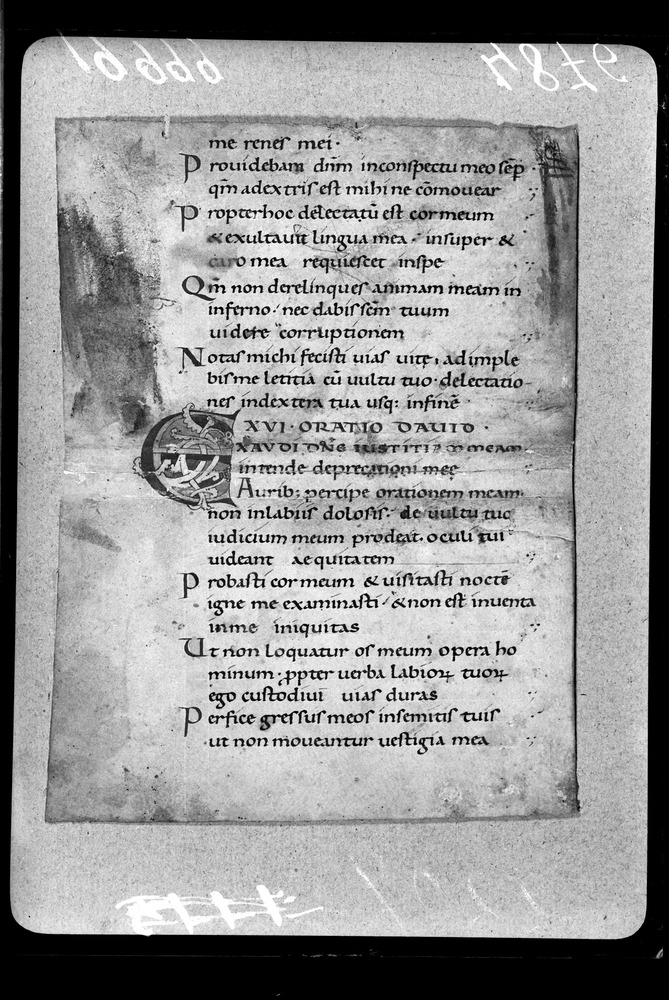 66661 9784
me renes mei·
Prouidebam dn̄m inconspectu meo sēp
qm̄ adextris est mihi ne cōmouear
Propter hoc delectatū est cor meum
& exultauit lingua mea· insuper &
caro mea requiescet inspe
Qm̄ non derelinques animam meam in
inferno· nec dabis scm̄ tuum
uidere corruptionem
Notas michi fecisti uias uitę, adimple
bis me letitia cū uultu tuo· delectatio
nes indextera tua usq: infinē
XVI·ORATIO DAUID·
EXAVDI DN̄E IUSTITIĀ MEAM
intende deprecationi meę
Aurib: percipe orationem meam·
non inlabiis dolosis· de uultu tuo
iudicium meum prodeat· oculi tui
uideant aequitatem
Probasti cor meum & uisitasti nocte
igne me examinasti· & non est inuenta
inme iniquitas
Ut non loquatur os meum opera ho
minum· ꝓpter uerba labioꝝ tuoꝝ
ego custodiui uias duras
Perfice gressus meos insemitis tuis
ut non moueantur uestigia mea